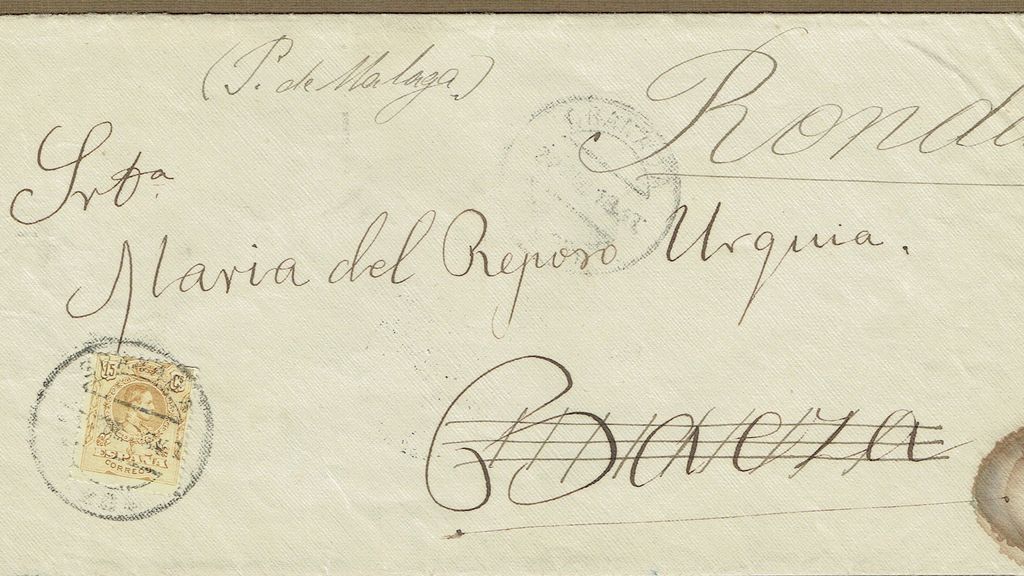 (P. de Malaga)
Ronda
Srta.
Maria del Reposo Urquia.
Baeza
15 Cs
CORREOS